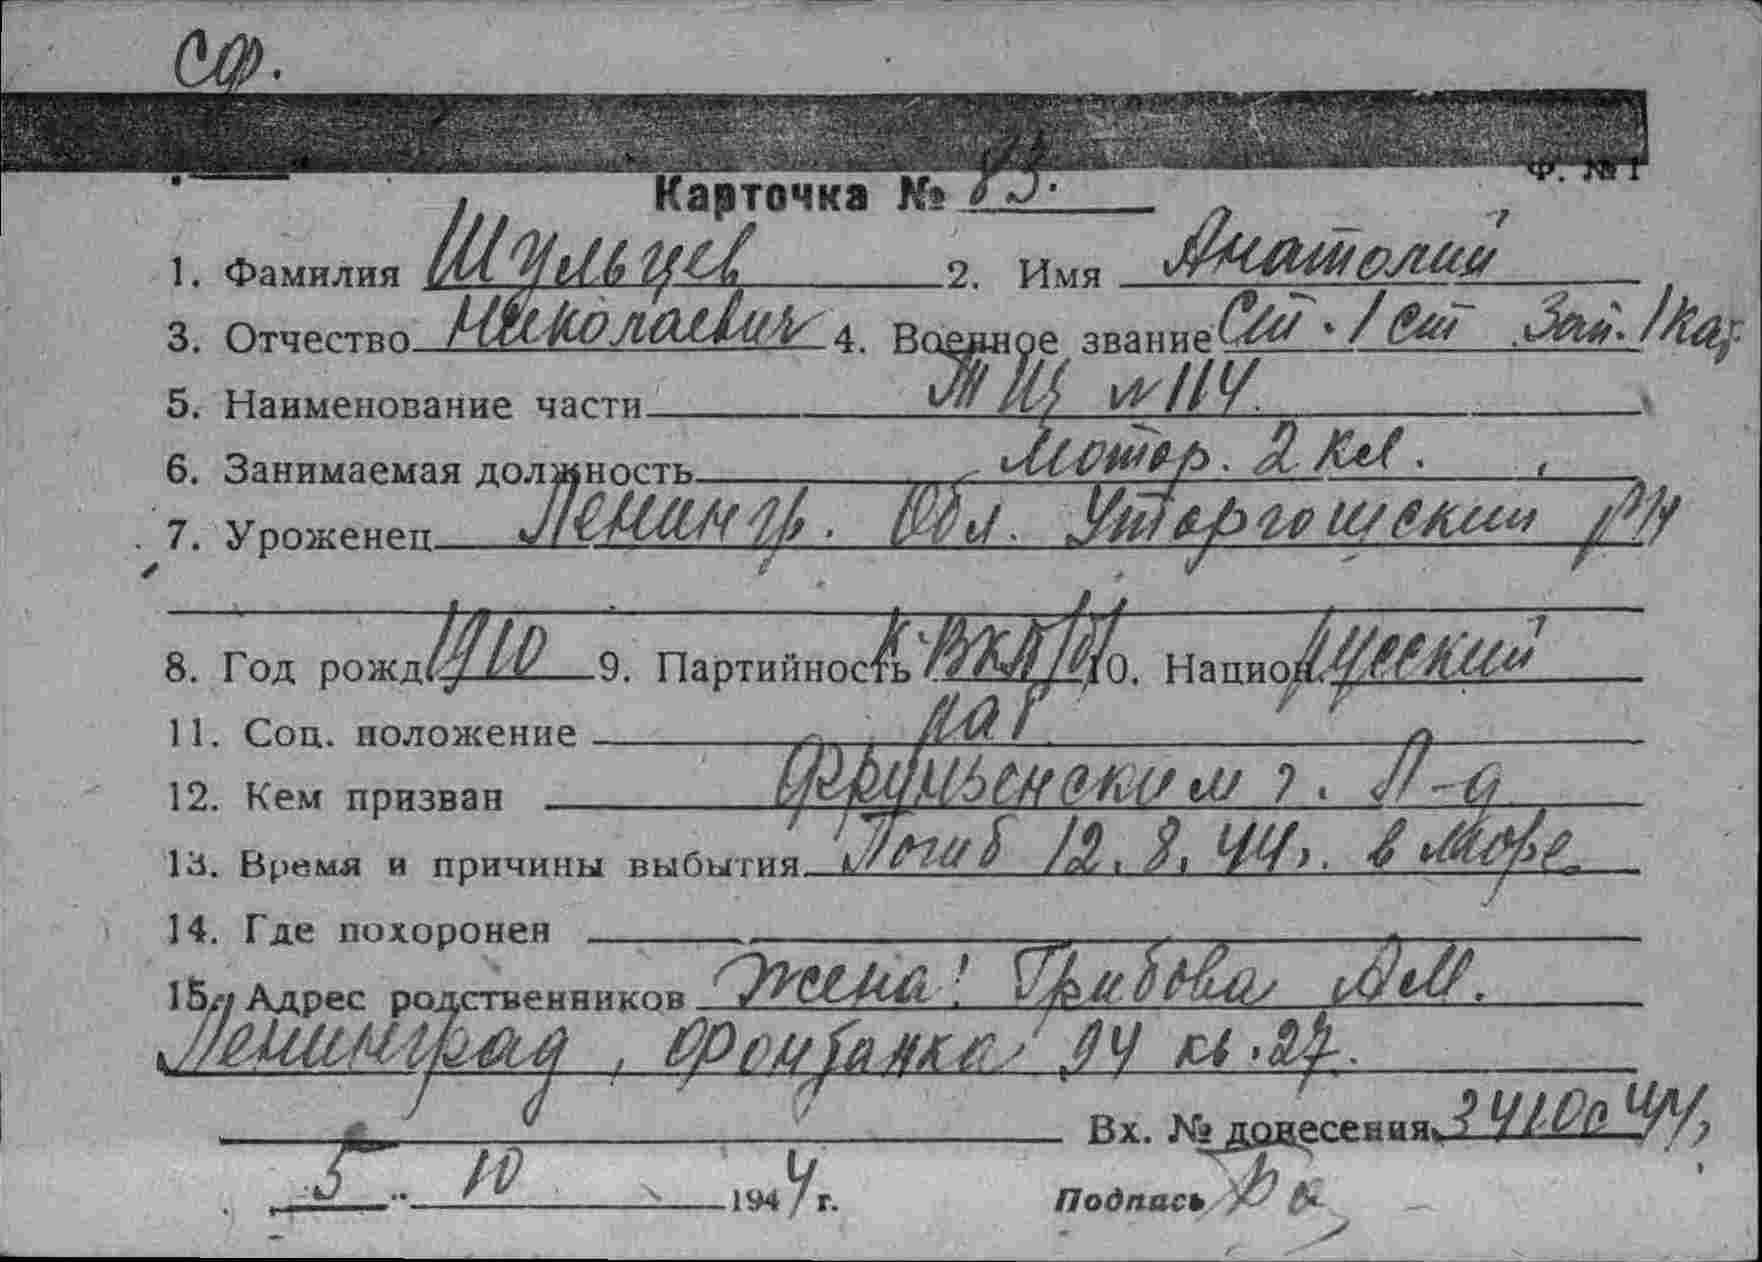 СФ.
Ф. № 1
Карточка № 83.
1. Фамилия Шульцев 2. Имя Анатолий
3. Отчество Николаевич 4. Военное звание Ст. 1 ст Зап. 1 кат
5. Наименование части ТЩ № 114
6. Занимаемая должность Мотор. 2 кл.
7. Уроженец Ленингр. Обл. Уторгошский р/н
8. Год рожд. 1910 9. Партийность к. ВКП/б/ 10. Национ. русский
11. Соц. положение раб
12. Кем призван Фрунзенским г. Л-д
13. Время и причины выбытия Погиб 12.8.44 г. в море
14. Где похоронен
15. Адрес родственников Жена: Грибова А.М.
Ленинград, Фонтанка 94 кв. 27.
Вх. № донесения 3410с 44
5 " 10 1944 г. Подпись